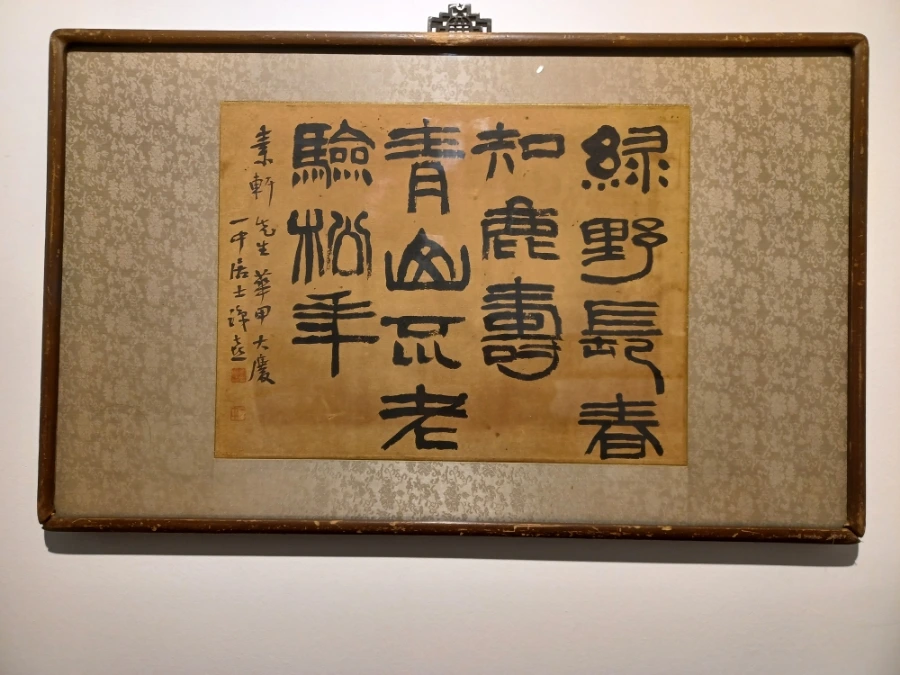 綠野長春
知鹿壽
青山不老
驗松年
素軒先生華甲大慶
一中居士譚